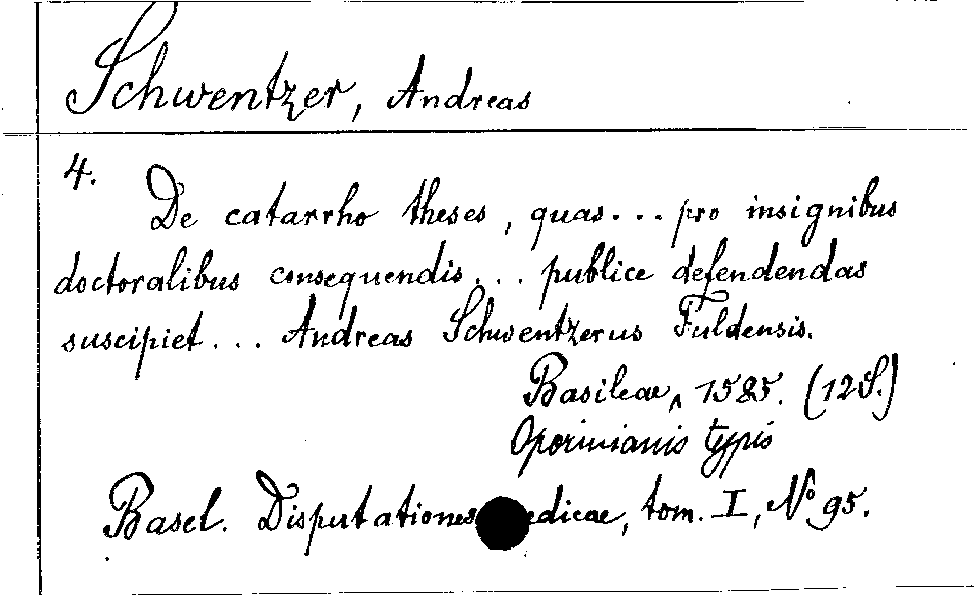 Schwentzer, Andreas
4.
De catarrho theses, quas... pro insignibus
doctoralibus consequendis... publice defendendas
suscipiet... Andreas Schwentzerus Fuldensis.
Basileae, 1585. (12 S.)
Oporinianis typis
Basel. Disputationes edicae, tom. I, No 95.